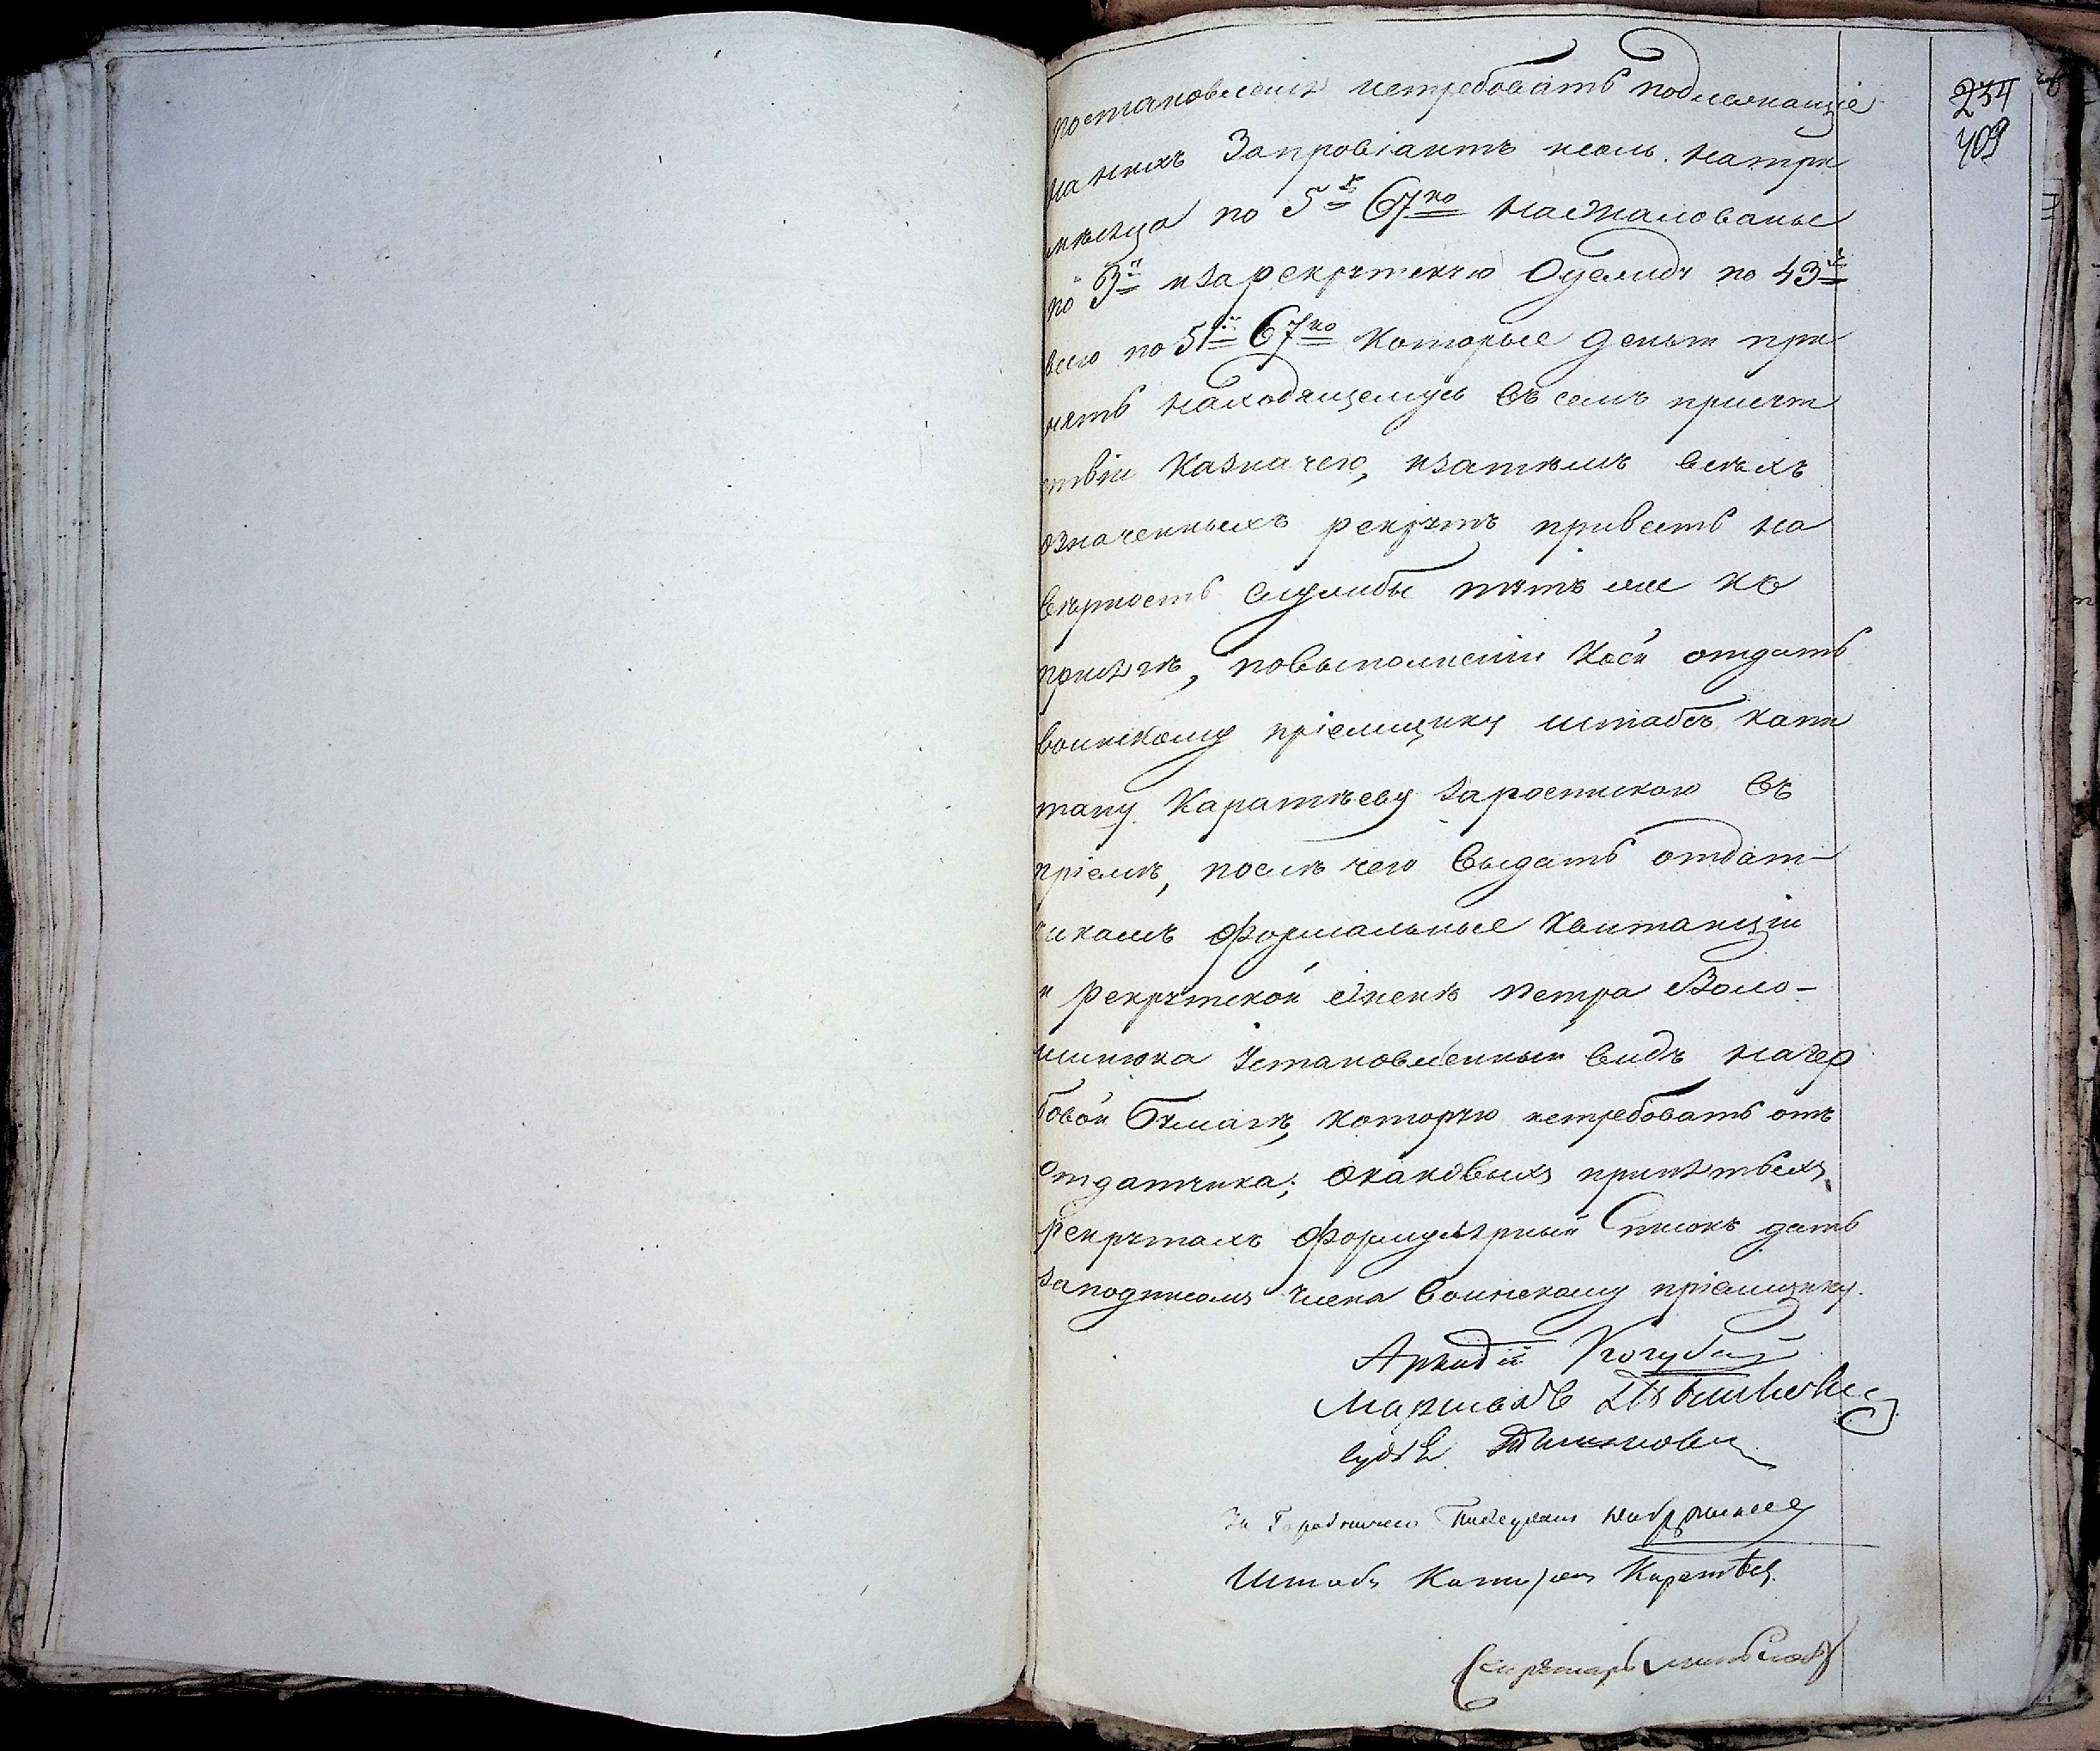 234
409
постановленія истребовать подлежащіе
на нихъ Запровіантъ исоль. натри
мѣсяца по 5 р 67 ко нажалованье
по 3 р изарекрутскую Одежду по 43 р
всего по 51 р 67 ко Которые деньги при
нять находящемуся въ семъ присут
ствіи Казначею, изатѣмъ всѣхъ
означенныхъ рекрутъ привесть на
вѣрность службы тутъ же къ
присягѣ, повыполненіи коей отдать
воинскому пріемщику штабсъ капи
тану Каратѣеву заропискою въ
пріемѣ, послѣ чего выдать отдат-
чикамъ Формальные квитанціи
и рекрутской женѣ Петра Воло-
шинюка Установленный видъ нагер
бовой бумагѣ, которую истребовать отъ
отдатчика; Окаковыхъ принятыхъ
рекрутахъ Формулярный Списокъ дать
заподписомъ члена воинскому пріемщику.
Аркадій Кочубей
Маршалъ
судья
За Городничего
Штабсъ Капитанъ Каратѣев
Секретарь